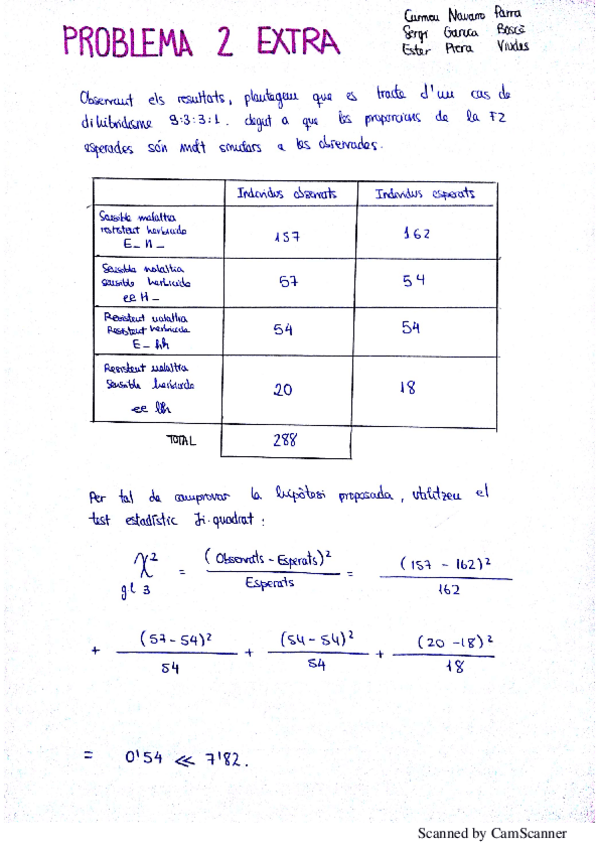 PROBLEMA 2 EXTRA
Carmen Navarro Parra
Sergi Garcia Boscà
Ester Piera Viudes
Observant els resultats, plantegem que es tracta d'un cas de
dihibridisme 9:3:3:1. degut a que les proporcions de la F2
esperades són molt similars a les observades.
Individus observats Individus esperats
Sensible malaltia
resistent herbicida
E_ H_
157 162
Sensible malaltia
sensible herbicida
ee H_
57 54
Resistent malaltia
Resistent herbicida
E_ hh
54 54
Resistent malaltia
Sensible herbicida
ee hh
20 18
TOTAL 288
Per tal de comprovar la hipòtesi proposada, utilitzem el
test estadístic Ji-quadrat:
χ² gl 3 = (Observats - Esperats)² / Esperats = (157 - 162)² / 162
+ (57-54)² / 54 + (54-54)² / 54 + (20-18)² / 18
= 0'54 << 7'82.
Scanned by CamScanner